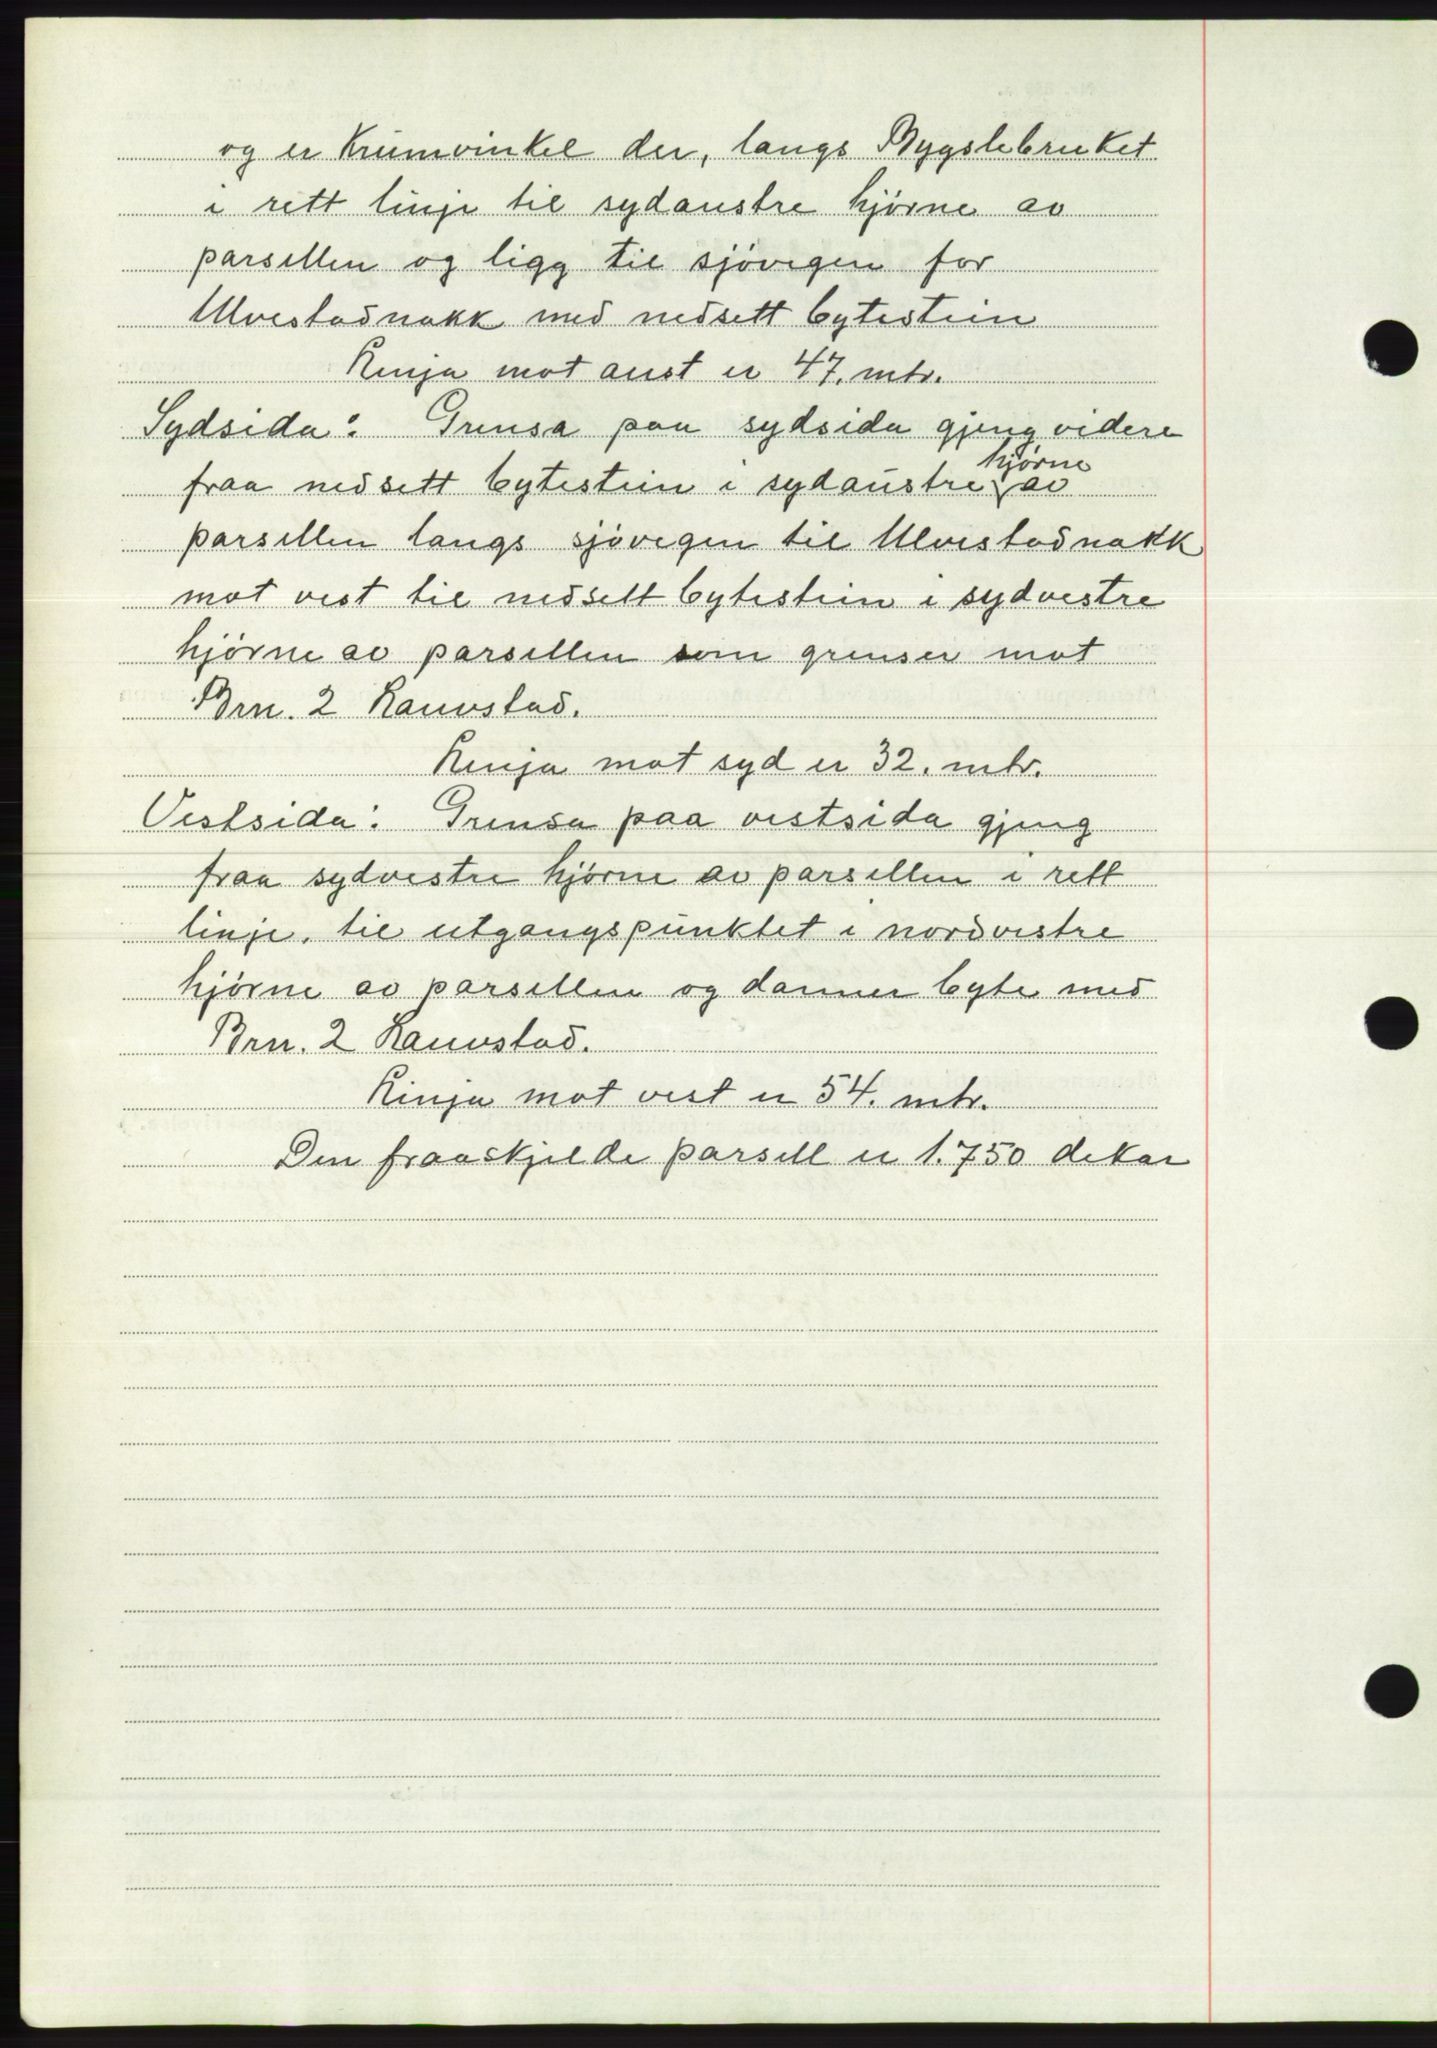 og er Krumvinkel der, langs Bygslebruket
i rett linje til sydaustre hjörne av
parsellen og ligg til sjövegen for
Ulvestadnakk med nedsett bytestein
Linja mot aust er 47. mtr.
Sydsida: Grensa paa sydsida gjeng videre
fraa nedsett bytestein i sydaustre hjörne av
parsellen langs sjövegen til Ulvestadnakk
mot vest til nedsett bytestein i sydvestre
hjörne av parsellen som grenser mot
Brn. 2 Rauvstad.
Linja mot syd er 32. mtr.
Vestsida: Grensa paa vestsida gjeng
fraa sydvestre hjörne av parsellen i rett
linje. til utgangspunktet i nordvestre
hjörne av parsellen og danner byte med
Brn. 2 Rauvstad.
Linja mot vest er 54. mtr.
Den fraaskjelde parsell er 1.750 dekar